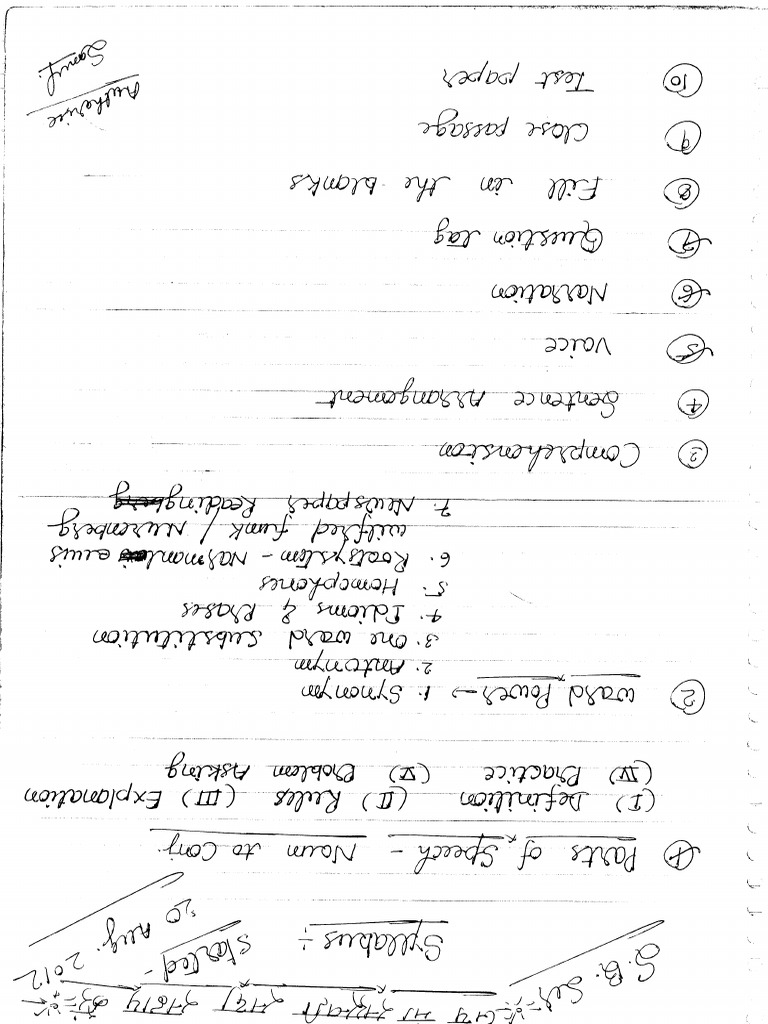 S.B. Sir
Syllabus :-
Started -
20 Aug. 2012
① Parts of Speech - Noun to Conj.
(I) Definition (II) Rules (III) Explanation
(IV) Practice (V) Problem Asking
② Word Power → 1. Synonym
2. Antonym
3. One word substitution
4. Idioms & Prases
5. Homophones
6. Rootsystem - Narman Lewis
Wilfred funk / Nurenberg
7. Newspaper Reading
③ Comprehension
④ Sentence Arrangement
⑤ Voice
⑥ Narration
⑦ Question tag
⑧ Fill in the blanks
⑨ Close passage
⑩ Test paper